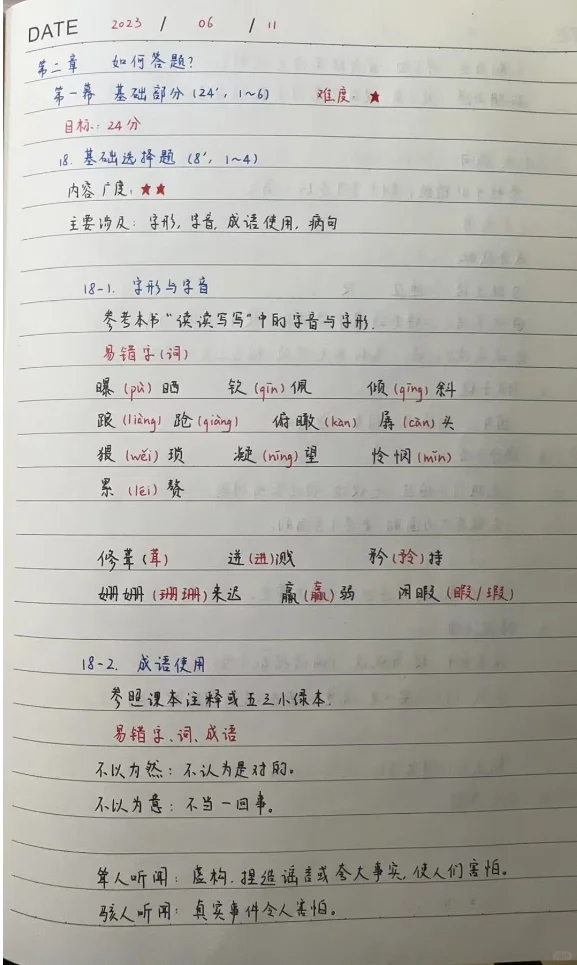 DATE 2023 / 06 / 11
第二章 如何答题?
第一幕 基础部分(24', 1~6) 难度:★
目标:24分
18. 基础选择题(8', 1~4)
内容广度:★★
主要涉及:字形,字音,成语使用,病句
18-1. 字形与字音
参考本书“读读写写”中的字音与字形.
易错字(词)
曝(pù)晒 钦(qīn)佩 倾(qīng)斜
踉(liàng)跄(qiàng) 俯瞰(kàn) 孱(càn)头
猥(wěi)琐 凝(níng)望 怜悯(mǐn)
累(léi)赘
修葺(茸) 迸(进)溅 矜(矝)持
姗姗(珊珊)来迟 羸(赢)弱 闲暇(暇/瑕)
18-2. 成语使用
参照课本注释或五三小绿本.
易错字、词、成语
不以为然:不认为是对的。
不以为意:不当一回事。
耸人听闻:虚构.捏造谣言或夸大事实,使人们害怕。
骇人听闻:真实事件令人害怕。